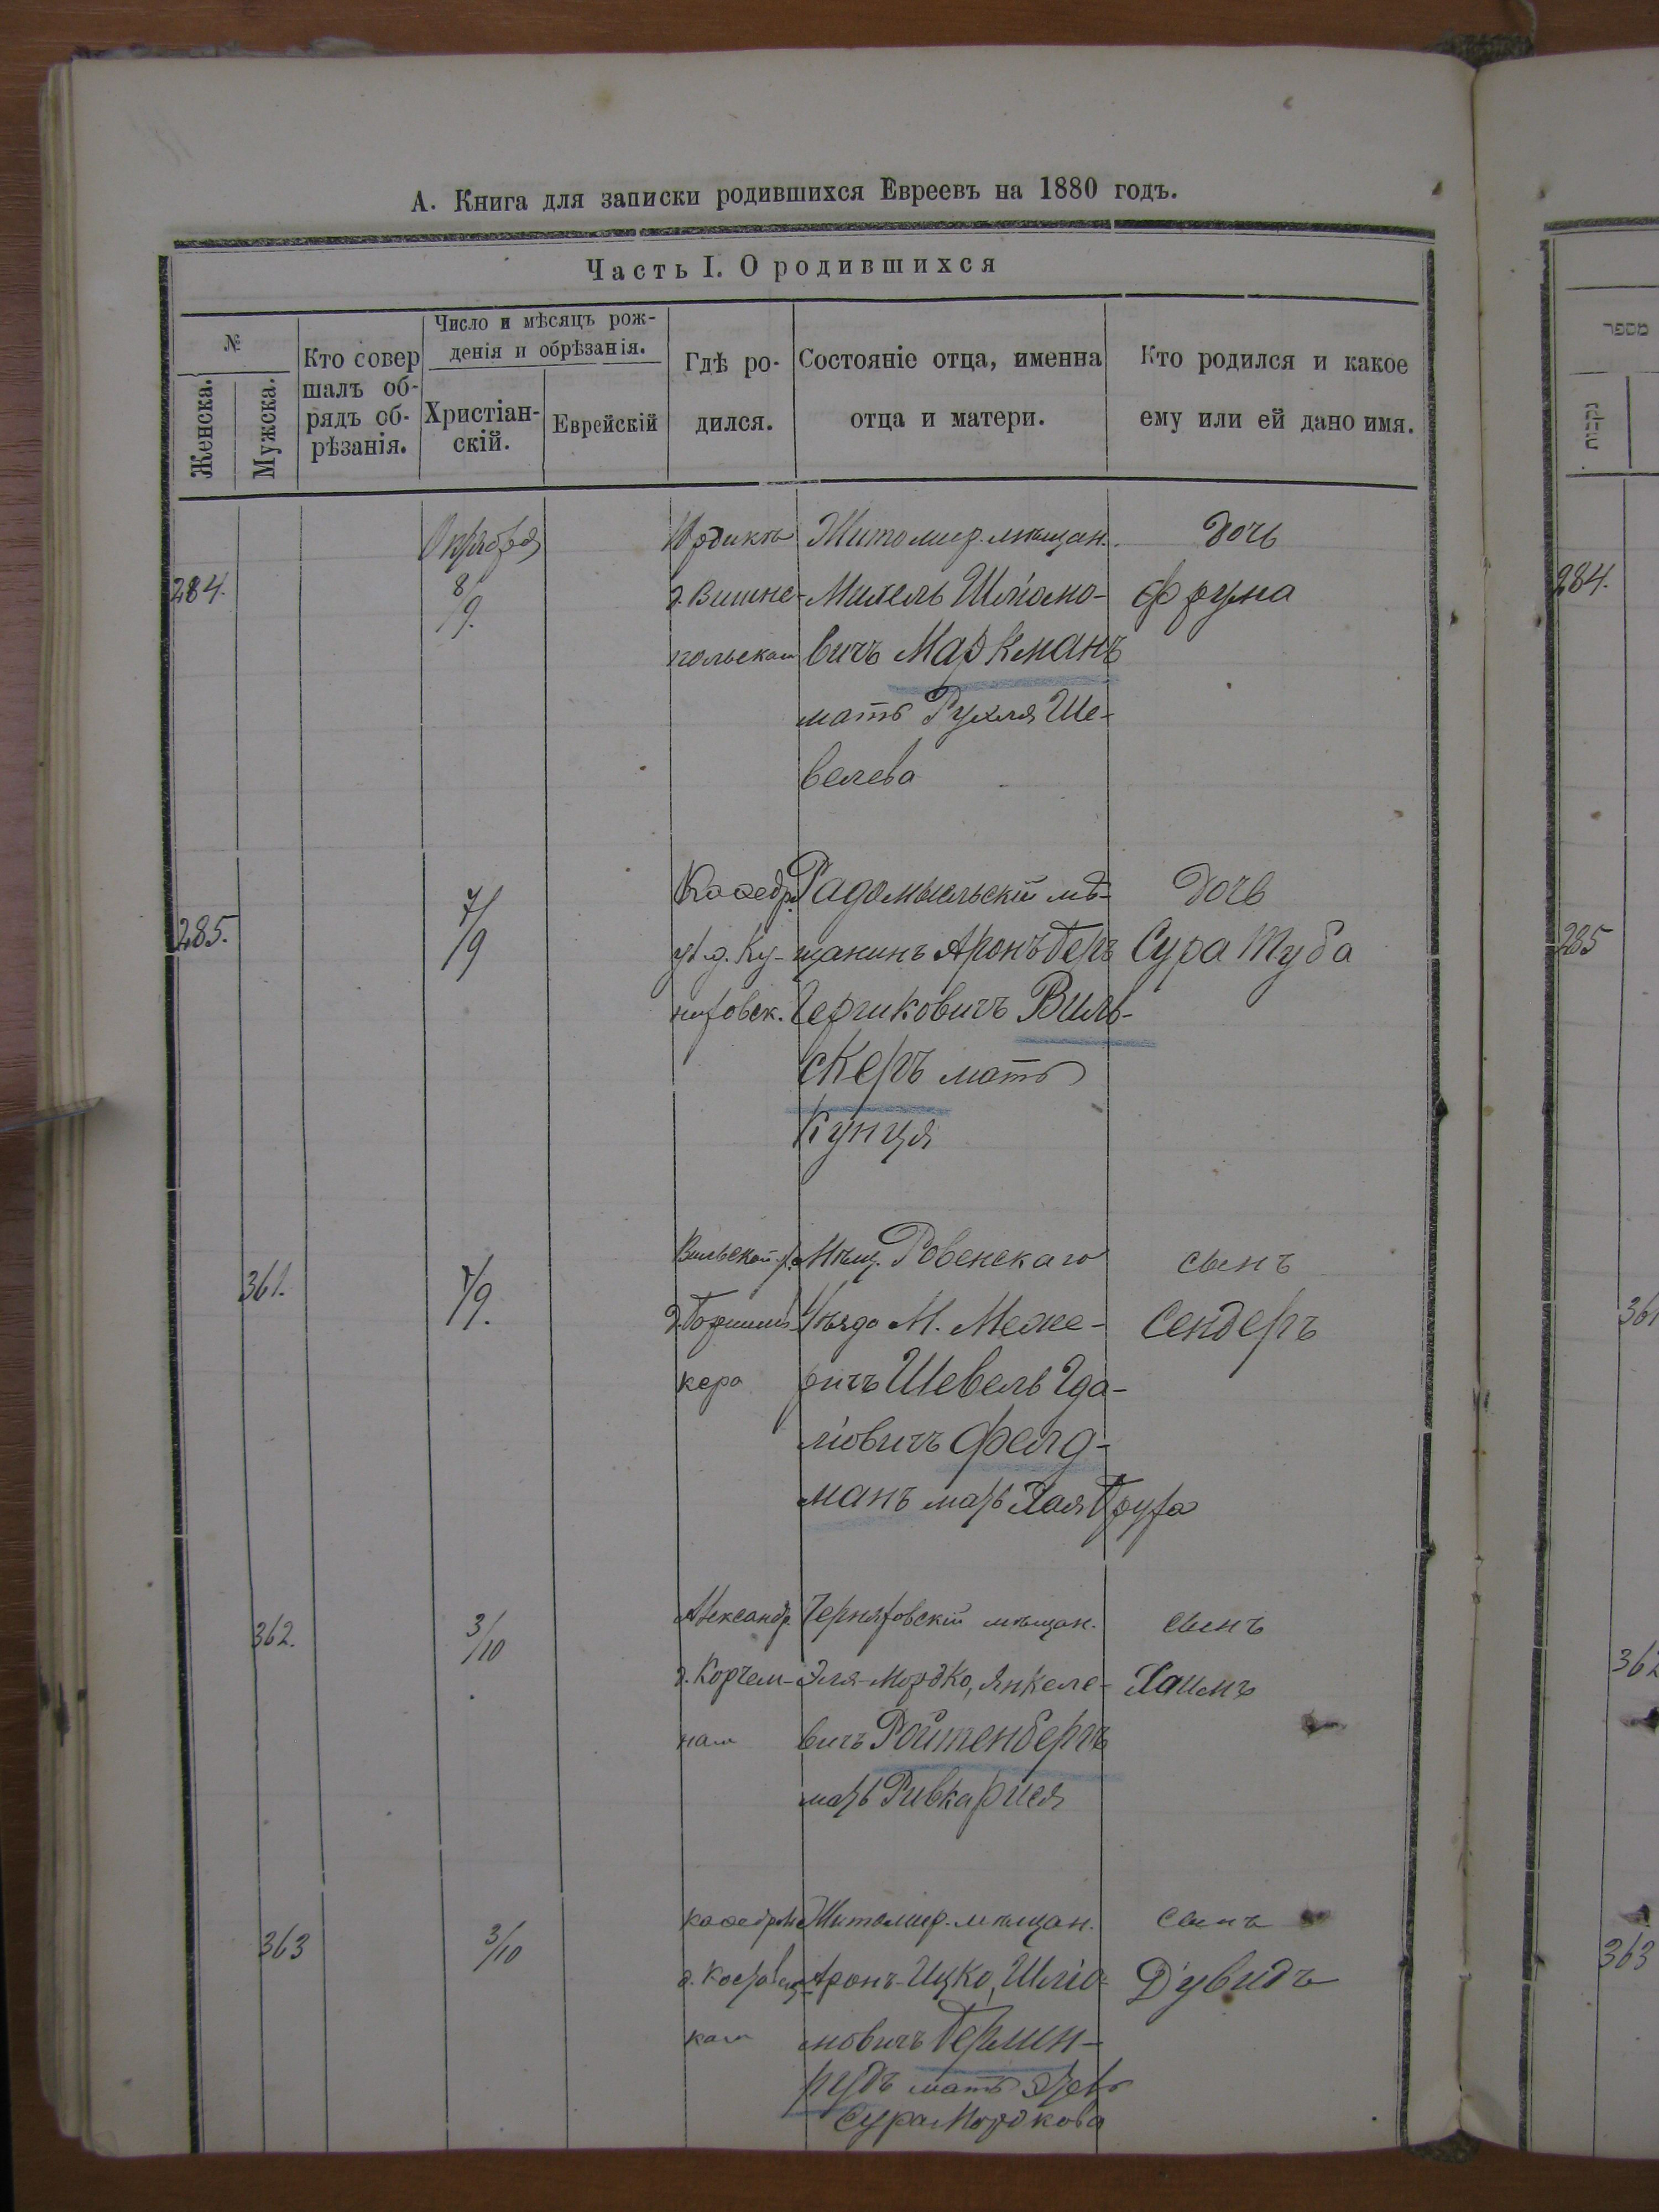 А. Книга для записки родившихся Евреевъ на 1880 годъ.
Часть I. О родившихся
№
Женска.
Мужска.
Кто совер
шалъ об-
рядъ об-
рѣзанія.
Число и мѣсяцъ рож-
денія и обрѣзанія.
Христіан-
скій.
Еврейскій
Гдѣ ро-
дился.
Состояніе отца, именна
отца и матери.
Кто родился и какое
ему или ей дано имя.
מספר
נקבות
284.
Октября
8/9.
д. Вишне-
польскаи
Житомир. мѣщан.
Михель Шліомо-
вичъ Маркманъ
мать Рухля Ше-
велева
Дочь
Фрума
284.
285.
7/9
Каѳедр.
ул д. Ку-
Радомысльскій мѣ-
щанинъ Аронъ Беръ
Гершковичъ Виль-
скеръ мать
Кунця
Дочь
Сура Туба
285
361.
7/9.
Вильской
кера
Мѣщ. Ровенскаго
Уѣзда М. Меже-
ричъ Шевель Гда-
ліовичъ Фелд-
манъ мать Хая Груха
сынъ
Сендеръ
361
362.
3/10
Александр.
д. Корчем-
наи
Черняховскій мѣщан.
Эля-Мордко, Янкеле-
вичъ Ройтенбергъ
мать Ривка Рися
сынъ
Хаимъ
362
363
3/10
каѳедрал
каи
Житомир. мѣщан.
Аронъ-Ицко, Шліо-
мовичъ Гермин-
рудъ мать
Сура Мордкова
сынъ
Дувидъ
363